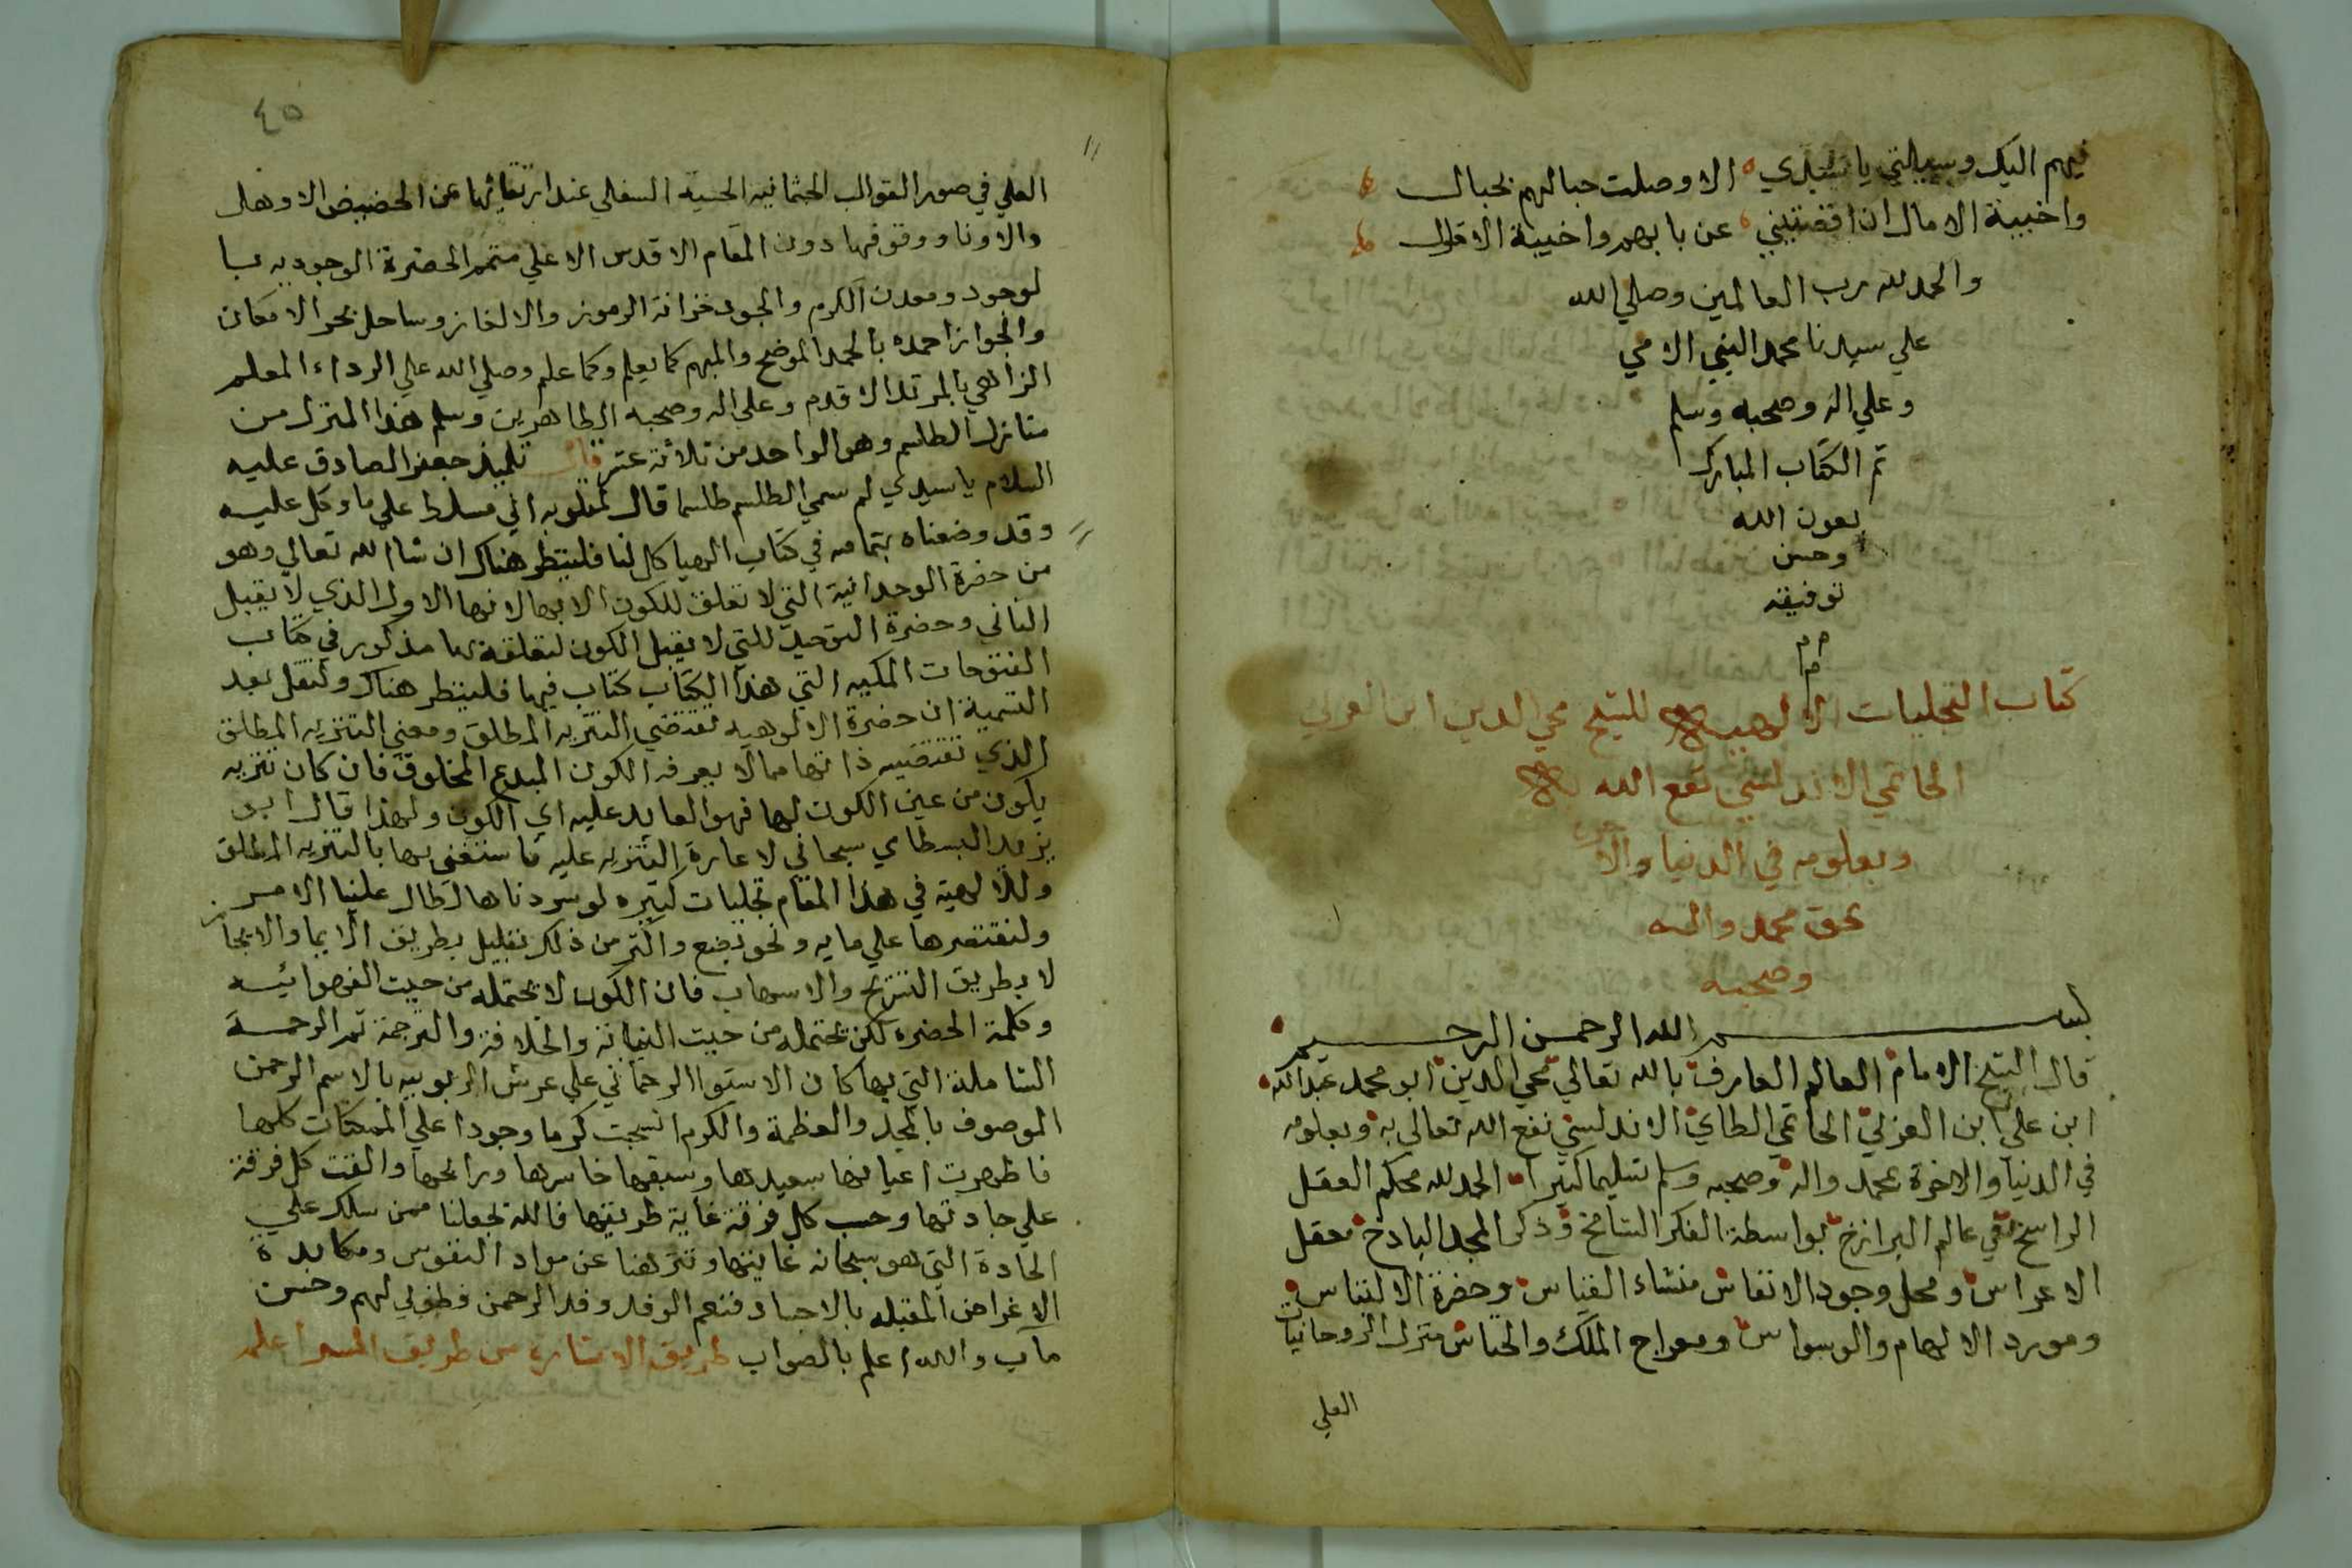 فيهم اليك وسيلتي يا سيدي الا وصلت حبالهم بحبال
واخيبة الامال ان اقصيتني عن بابهم واخيبة الاقوال
والحمد لله رب العالمين وصلي الله
علي سيدنا محمد النبي الامي
وعلي اله وصحبه وسلم
تم الكتاب المبارك
بعون الله
وحسن
توفيقه
م م
م
كتاب التجليات الالهيه للشيخ محي الدين ابن العربي
الحاتمي الاندلسي نفع الله به
وبعلومه في الدنيا والاخره
بحق محمد واله
وصحبه
بسم الله الرحمن الرحيم
قال الشيخ الامام العالم العارف بالله تعالي محي الدين ابو محمد عبدالله
ابن علي ابن العربي الحاتمي الطاي الاندلسي نفع الله تعالي به وبعلومه
في الدنيا والاخرة بمحمد واله وصحبه وسلم تسليما كثيرا الحمد لله محكم العقل
الراسخ في عالم البرازخ بواسطة الفكر الشامخ وذكر المجد الباذخ معقل
الاعراس ومحل وجود الانفاس منشاء القياس وحضرة الالتباس
ومورد الالهام والوسواس ومعراج الملك والخناس منزل الروحانيات
العلي
٤٥
العلي في صور القوالب الجثمانيه الحسيه السفلي عند ارتقائها عن الحضيض الاوهد
والادنا ووقوفها دون المقام الاقدس الاعلي متمم الحضرة الوجوديه با
لوجود ومعدن الكرم والجود خزانة الرموز والالغاز وساحل بحر الامكان
والجواز احمده بالحمد الموضح والمبهم كما يعلم وكما علم وصلي الله علي الرداء المعلم
الزاهي بالمرتد الاقدم وعلي اله وصحبه الطاهرين وسلم هذا المنزل من
منازل الطلسم وهو الواحد من ثلاثة عشر قال تلميذ جعفر الصادق عليه
السلام يا سيدي لم سمي الطلسم طلسما قال لمقلوبه اي مسلط علي ما وكل عليه
وقد وضعناه بتمامه في كتاب الهياكل لنا فلينظر هناك ان شاالله تعالي وهو
من حضرة الوحدانية التي لا تعلق للكون الا بها لانها الاول الذي لا يقبل
الثاني وحضرة التوحيد التي لا يقبل الكون لتعلقه بها مذكور في كتاب
الفتوحات المكيه التي هذا الكتاب كتاب فيها فلينظر هناك ولنقل بعد
التسمية ان حضرة الالوهيه تقتضي التنزيه المطلق ومعني التنزيه المطلق
الذي تقتضيه ذاتها مما لا يعرفه الكون المبدع المخلوق فان كان تنزيه
يكون من عين الكون لها فهو العايد عليه اي الكون ولهذا قال ابو
يزيد البسطامي سبحاني لاعادة التنزيه عليه فاستغني بها بالتنزيه المطلق
وللالهية في هذا المقام تجليات كثيره لو سردناها لطال علينا الامر
ولنقتصرها علي مايه ونحو بضع واكثر من ذلك بقليل بطريق الايما والايجاز
لا بطريق التشريح والاسهاب فان الكون لا يحتمله من حيث الفهوانيه
وكلمة الحضره لكن يحتمله من حيث النيابة والخلافة والترجمة ثم الرحمة
الشاملة التي بها كان الاستوا الرحماني علي عرش الربوبيه بالاسم الرحمن
الموصوف بالمجد والعظمة والكرم انسحبت كرما وجودا علي الممكنات كلها
فاظهرت اعيانها سعيدها وشقيها خاسرها ورابحها والقت كل فرقة
علي جادتها وحسب كل فرقة غاية طريقها فالله يجعلنا ممن سلك علي
الجادة التي هو سبحانه غايتها وتنزهنا عن مواد النفوس ومكابدة
الاغراض المقبله بالاجساد فنعم الوفد وفد الرحمن فطوبي لهم وحسن
مآب والله اعلم بالصواب طريق الاشاره من طريق السر اعلم